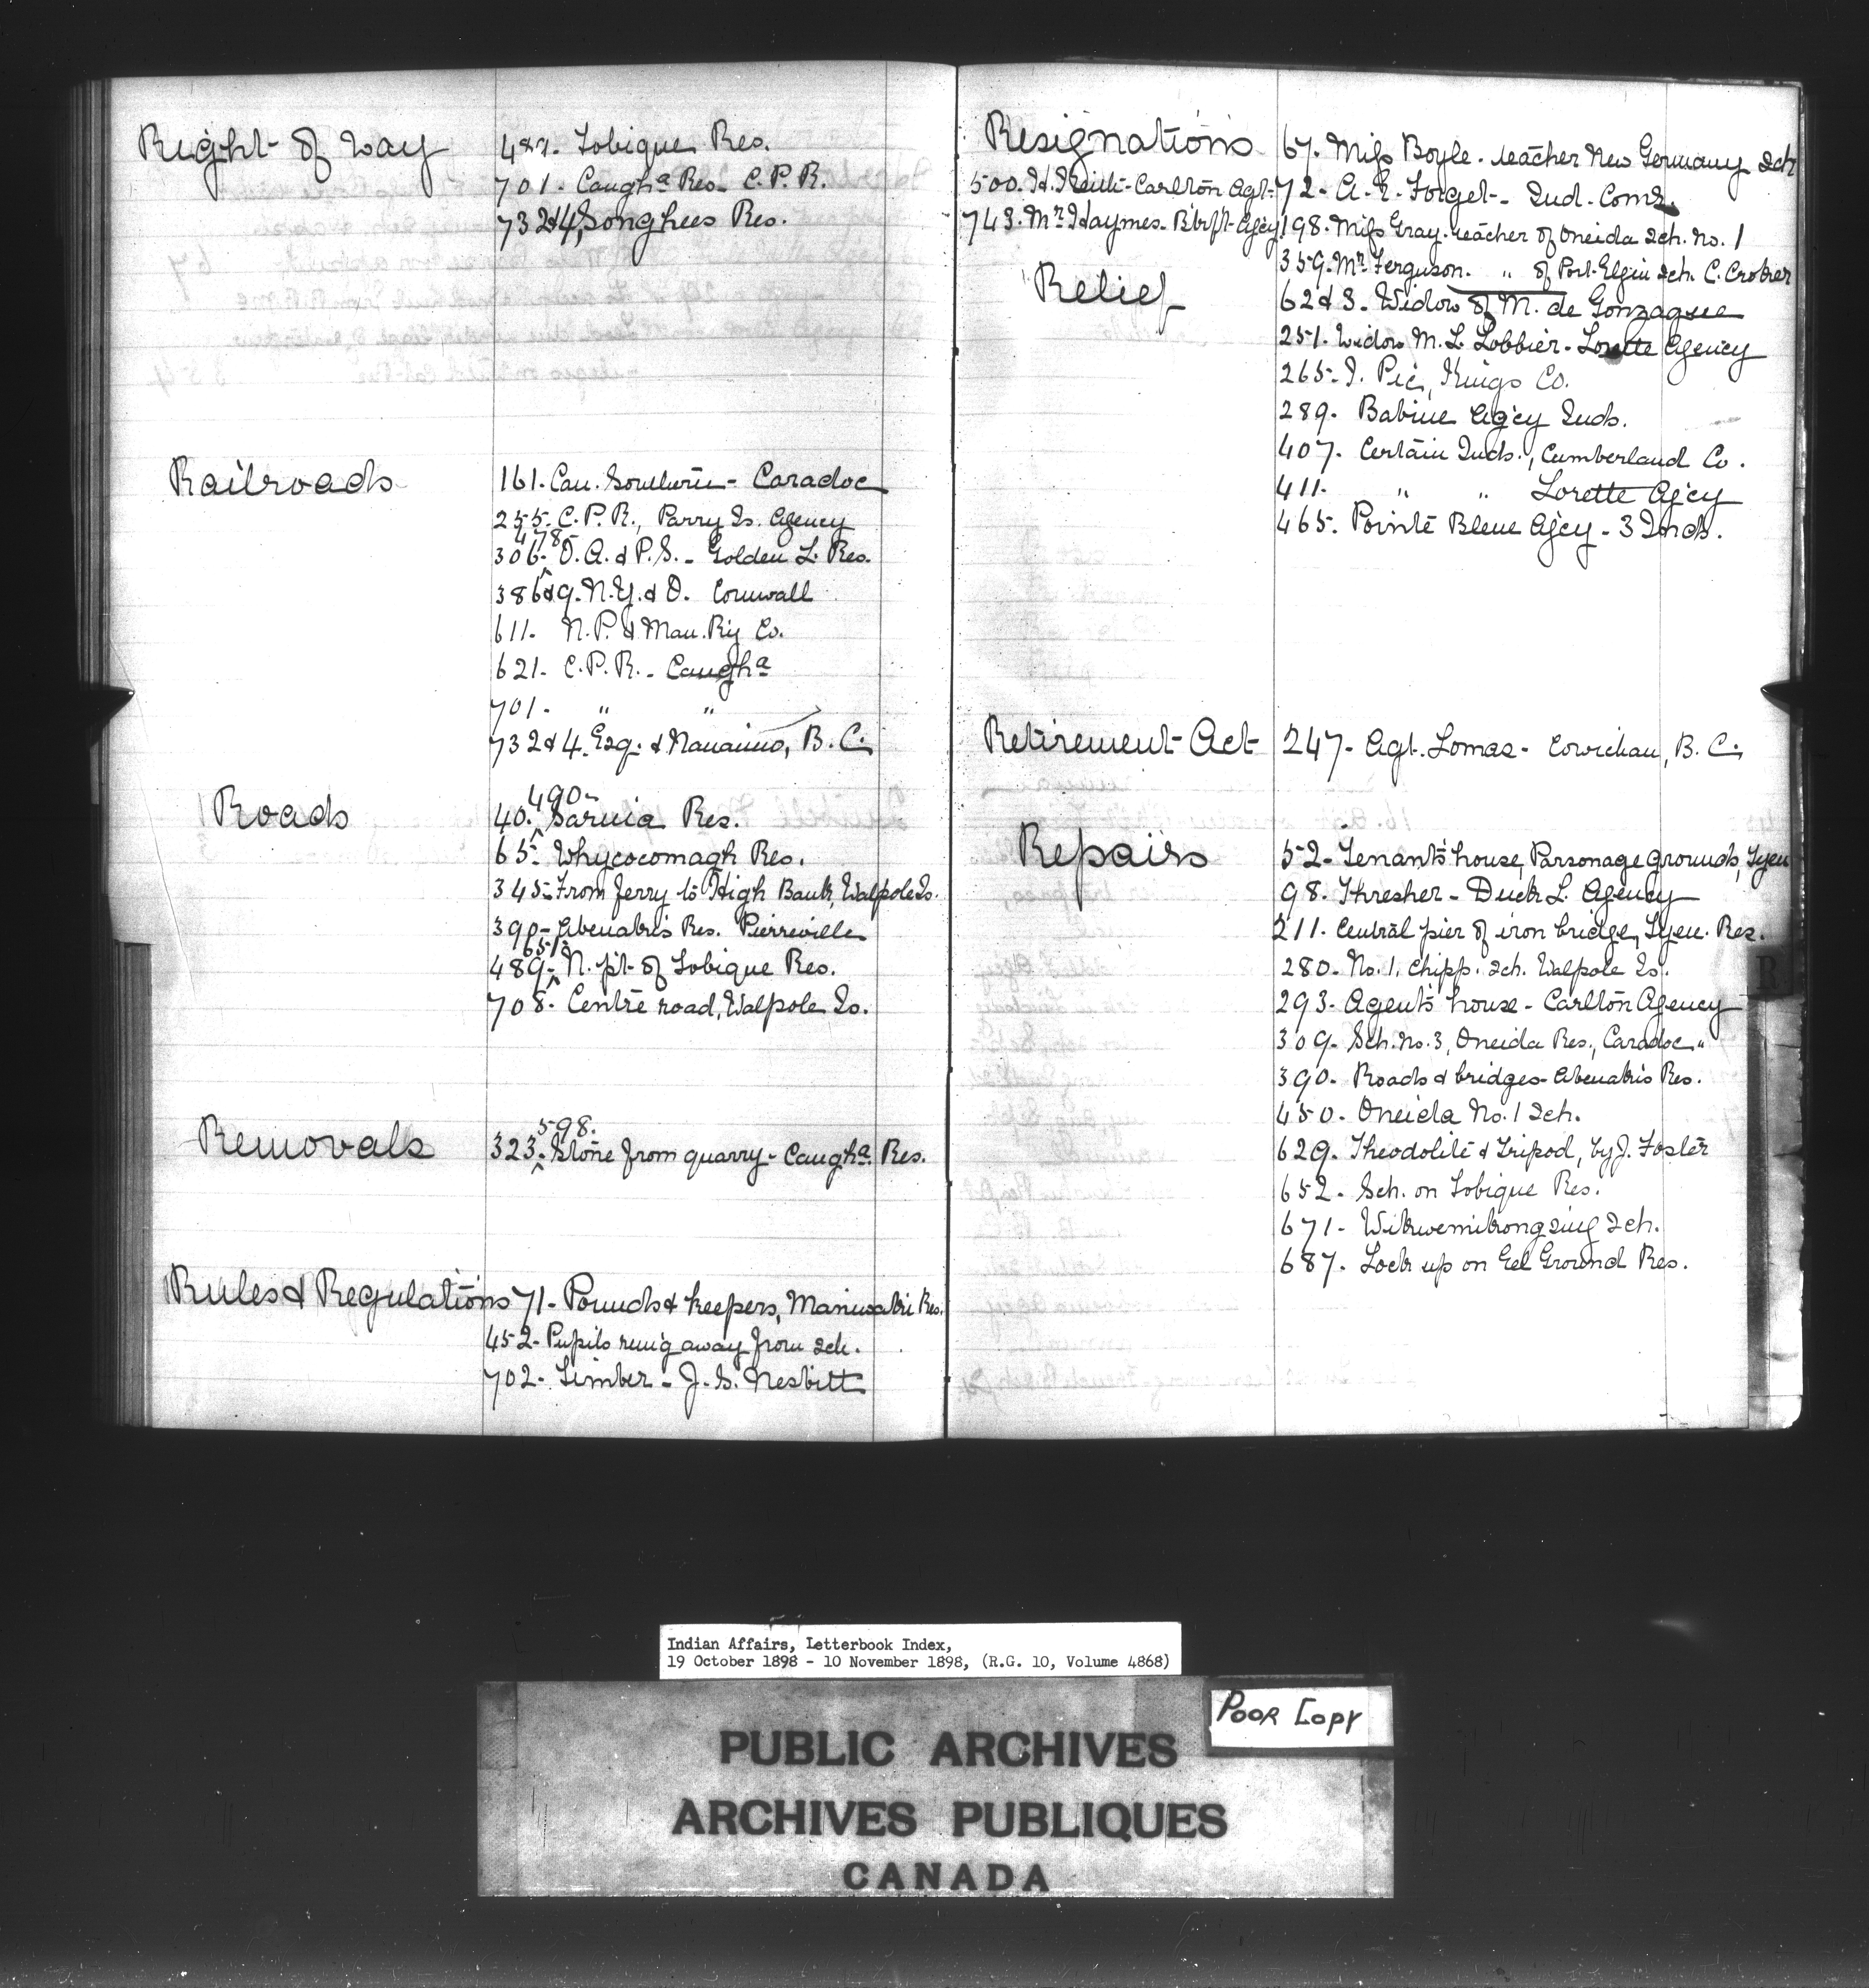 Right of Way
487. Tobique Res.
701. Caugha Res. C.P.R.
732&4, Songhees Res.
Railroads
161. Can. Southern - Caradoc
255. C.P.R., Parry Is. Agency
478
306. O.A. & P.S. - Golden L. Res.
386&9. N.Y. & O. Cornwall
611. N.P. & Man. Ry Co.
621. C.P.R. - Caugha
701. " "
732&4. Esq. & Nanaimo, B.C.
Roads
490-
40. Sarnia Res.
65. Whycocomagh Res.
345. From ferry to High Bank, Walpole Is.
390- Abenakis Res. Pierreville
651-
489. N. pt. of Tobique Res.
708. Centre road, Walpole Is.
Removals
598.
323. Stone from quarry - Caugha Res.
Rules & Regulations
71- Pounds & keepers, Maniwaki Res.
452- Pupils run'g away from sch.
702- Timber - J.S. Nesbitt
Resignations
67. Miss Boyle. teacher New Germany Sch
500. H. Keith - Carlton Agt-
72- A.E. Forget - Ind. Comr.
743. Mr. Haymes- Agcy
198. Miss Gray. teacher of Oneida Sch. No. 1
359. Mr. Ferguson. " of Port Elgin Sch. C. Croker
Relief
62&3. Widow of M. de Gonzague
251. Widow M.L. Lobbier - Lorette Agency
265. I. Pic, Kings Co.
289. Babine Agcy Inds.
407. Certain Inds., Cumberland Co.
411. " " Lorette Agcy
465. Pointe Bleue Agcy - 3 Inds.
Retirement Act
247- Agt. Lomas - Cowichan, B.C.
Repairs
52- Tenant's house, Parsonage grounds, Tyen
98. Thresher - Duck L. Agency
211. Central pier of iron bridge, Tyen. Res.
280. No. 1, Chipp. Sch. Walpole Is.
293. Agent's house - Carlton Agency
309. Sch. No. 3, Oneida Res., Caradoc "
390. Roads & bridges - Abenakis Res.
450. Oneida No. 1 Sch.
629. Theodolite & Tripod, by J. Foster
652. Sch. on Tobique Res.
671. Wikwemikongsing Sch.
687. Lock up on Eel Ground Res.
R
Indian Affairs, Letterbook Index,
19 October 1898 - 10 November 1898, (R.G. 10, Volume 4868)
POOR COPY
PUBLIC ARCHIVES
ARCHIVES PUBLIQUES
CANADA